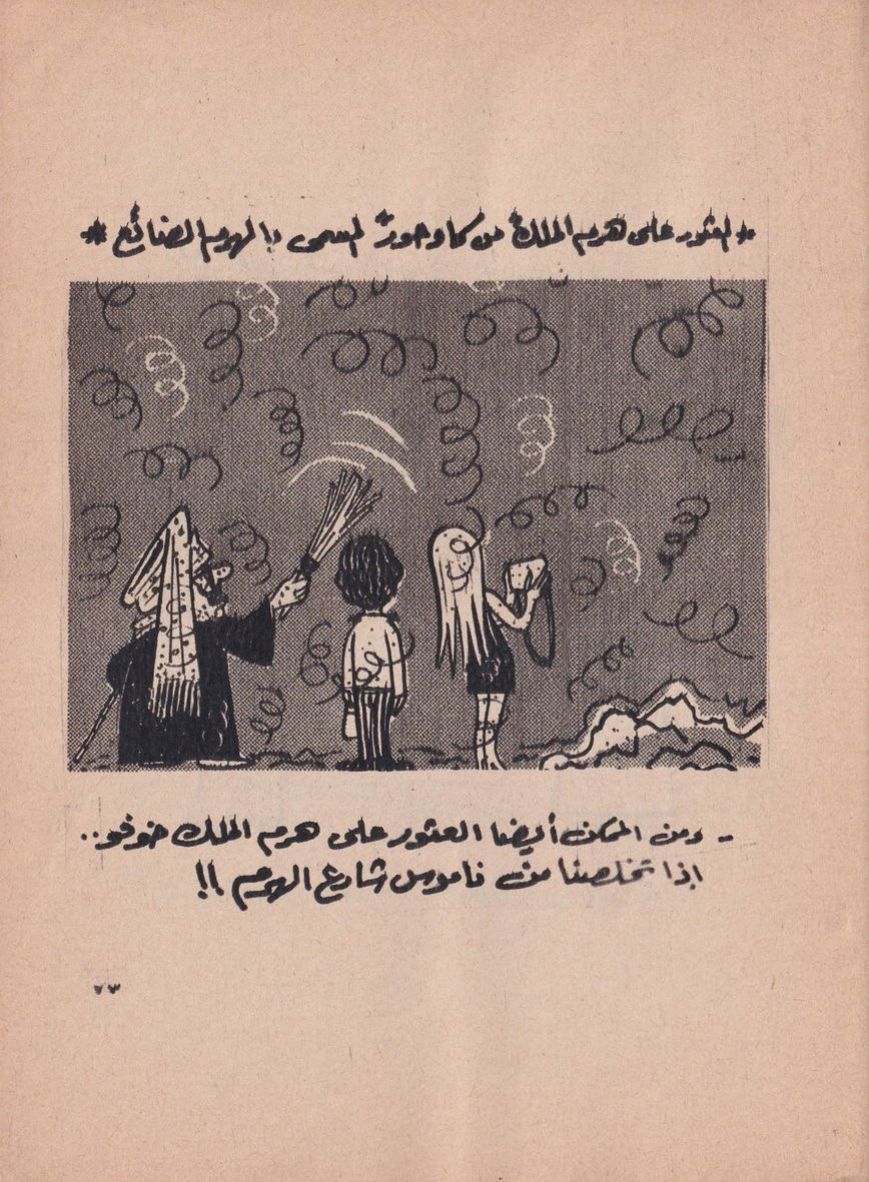 * العثور على هرم الملك "من كاو حور" المسمى بالهرم الضائع *
- ومن الممكن أيضا العثور على هرم الملك خوفو..
إذا تخلصنا من ناموس شارع الهرم !!
٧٣